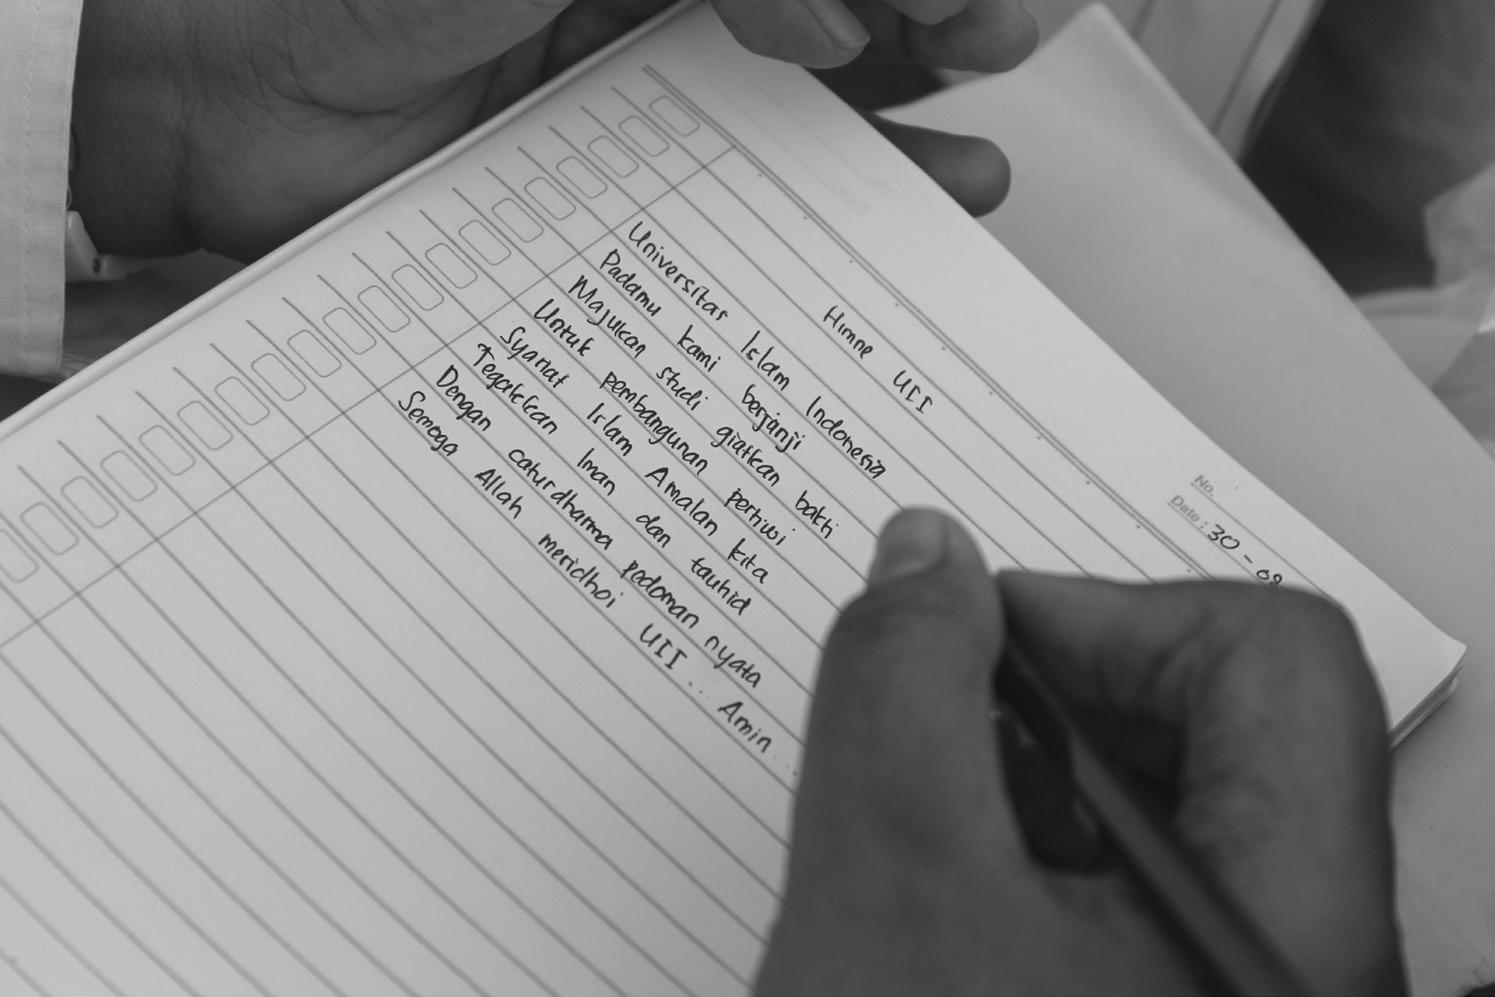 No.
Date : 30 - 08
Himne UII
Universitas Islam Indonesia
Padamu kami berjanji
Majukan studi giatkan bakti
Untuk pembangunan pertiwi
Syariat Islam Amalan kita
Tegakkan Iman dan tauhid
Dengan caturdharma pedoman nyata
Semoga Allah meridhoi UII ... Amin ...